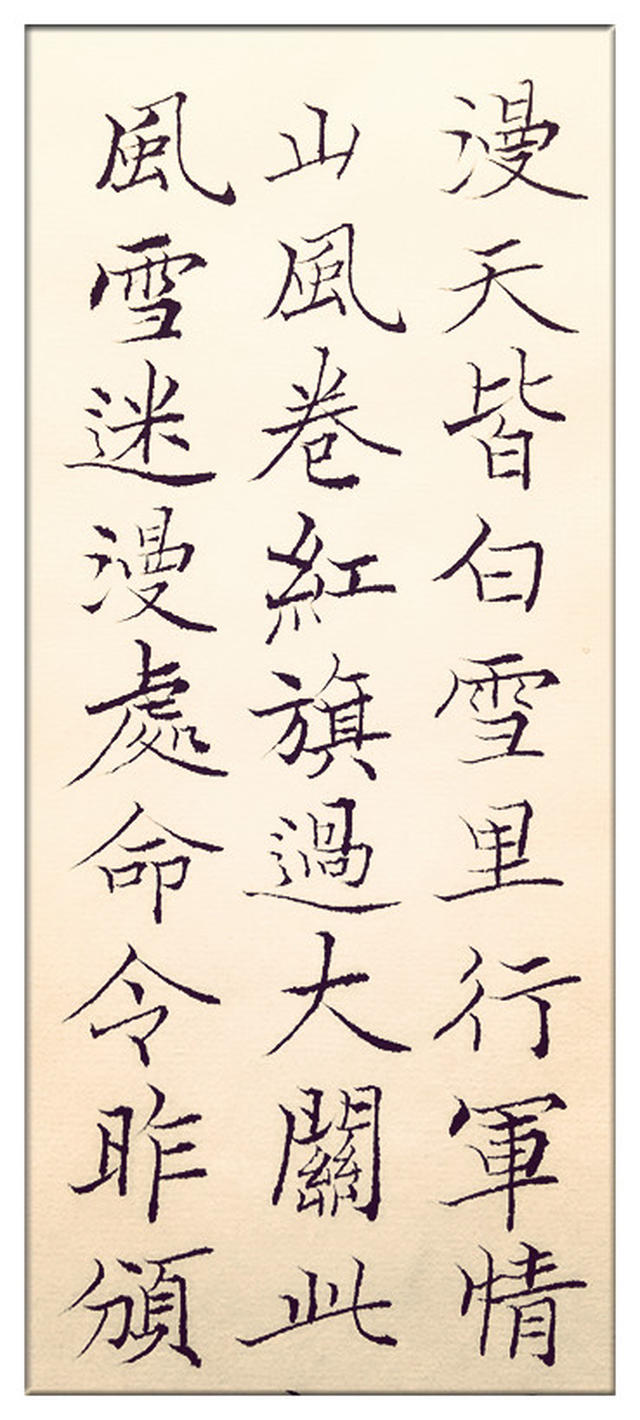 漫天皆白雪里行軍情
山風卷紅旗過大關此
風雪迷漫處命令昨頒